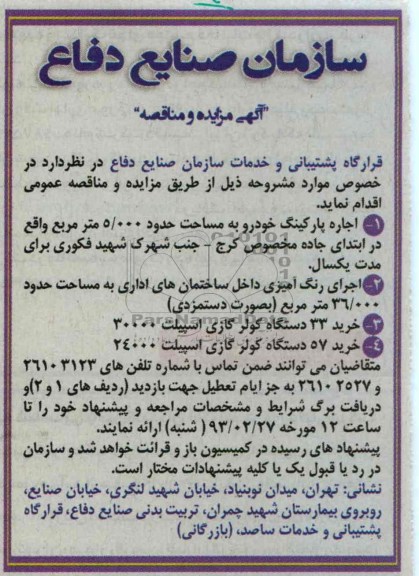 سازمان صنایع دفاع
"آگهی مزایده و مناقصه"
قرارگاه پشتیبانی و خدمات سازمان صنایع دفاع در نظردارد در
خصوص موارد مشروحه ذیل از طریق مزایده و مناقصه عمومی
اقدام نماید.
۱- اجاره پارکینگ خودرو به مساحت حدود ۵/۰۰۰ متر مربع واقع
در ابتدای جاده مخصوص کرج - جنب شهرک شهید فکوری برای
مدت یکسال.
۲- اجرای رنگ آمیزی داخل ساختمان های اداری به مساحت حدود
۳۶/۰۰۰ متر مربع (بصورت دستمزدی)
۳- خرید ۳۳ دستگاه کولر گازی اسپیلت ۳۰۰۰۰
۴- خرید ۵۷ دستگاه کولر گازی اسپیلت ۲۴۰۰۰
متقاضیان می توانند ضمن تماس با شماره تلفن های ۳۱۲۳ ۲۶۱۰
و ۲۵۲۷ ۲۶۱۰ به جز ایام تعطیل جهت بازدید (ردیف های ۱ و ۲)و
دریافت برگ شرایط و مشخصات مراجعه و پیشنهاد خود را تا
ساعت ۱۲ مورخه ۹۳/۰۲/۲۷ ( شنبه) ارائه نمایند.
پیشنهاد های رسیده در کمیسیون باز و قرائت خواهد شد و سازمان
در رد یا قبول یک یا کلیه پیشنهادات مختار است.
نشانی: تهران، میدان نوبنیاد، خیابان شهید لنگری، خیابان صنایع،
روبروی بیمارستان شهید چمران، تربیت بدنی صنایع دفاع، قرارگاه
پشتیبانی و خدمات ساصد، (بازرگانی)